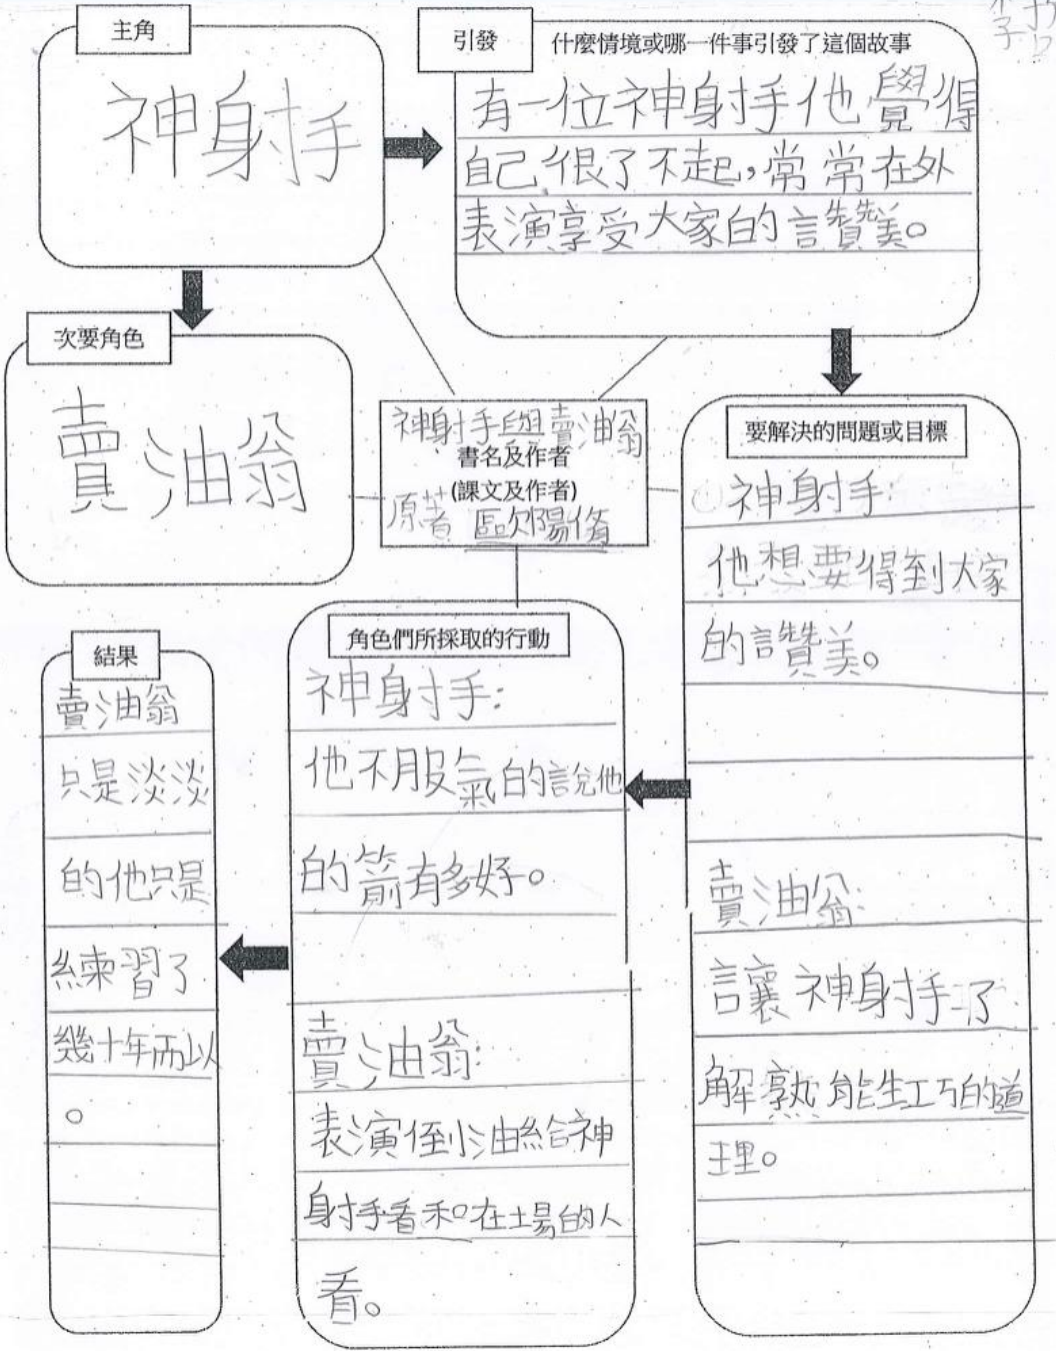 主角
神射手
引發
什麼情境或哪一件事引發了這個故事
有一位神射手他覺得
自己很了不起,常常在外
表演享受大家的讚美。
次要角色
賣油翁
神射手與賣油翁
書名及作者
(課文及作者)
原著 歐陽脩
要解決的問題或目標
①神射手:
他想要得到大家
的讚美。
賣油翁:
讓神射手了
解熟能生巧的道
理。
角色們所採取的行動
神射手:
他不服氣的說他
的箭有多好。
賣油翁:
表演倒油給神
射手看和在場的人
看。
結果
賣油翁
只是淡淡
的他只是
練習了
幾十年而以
。